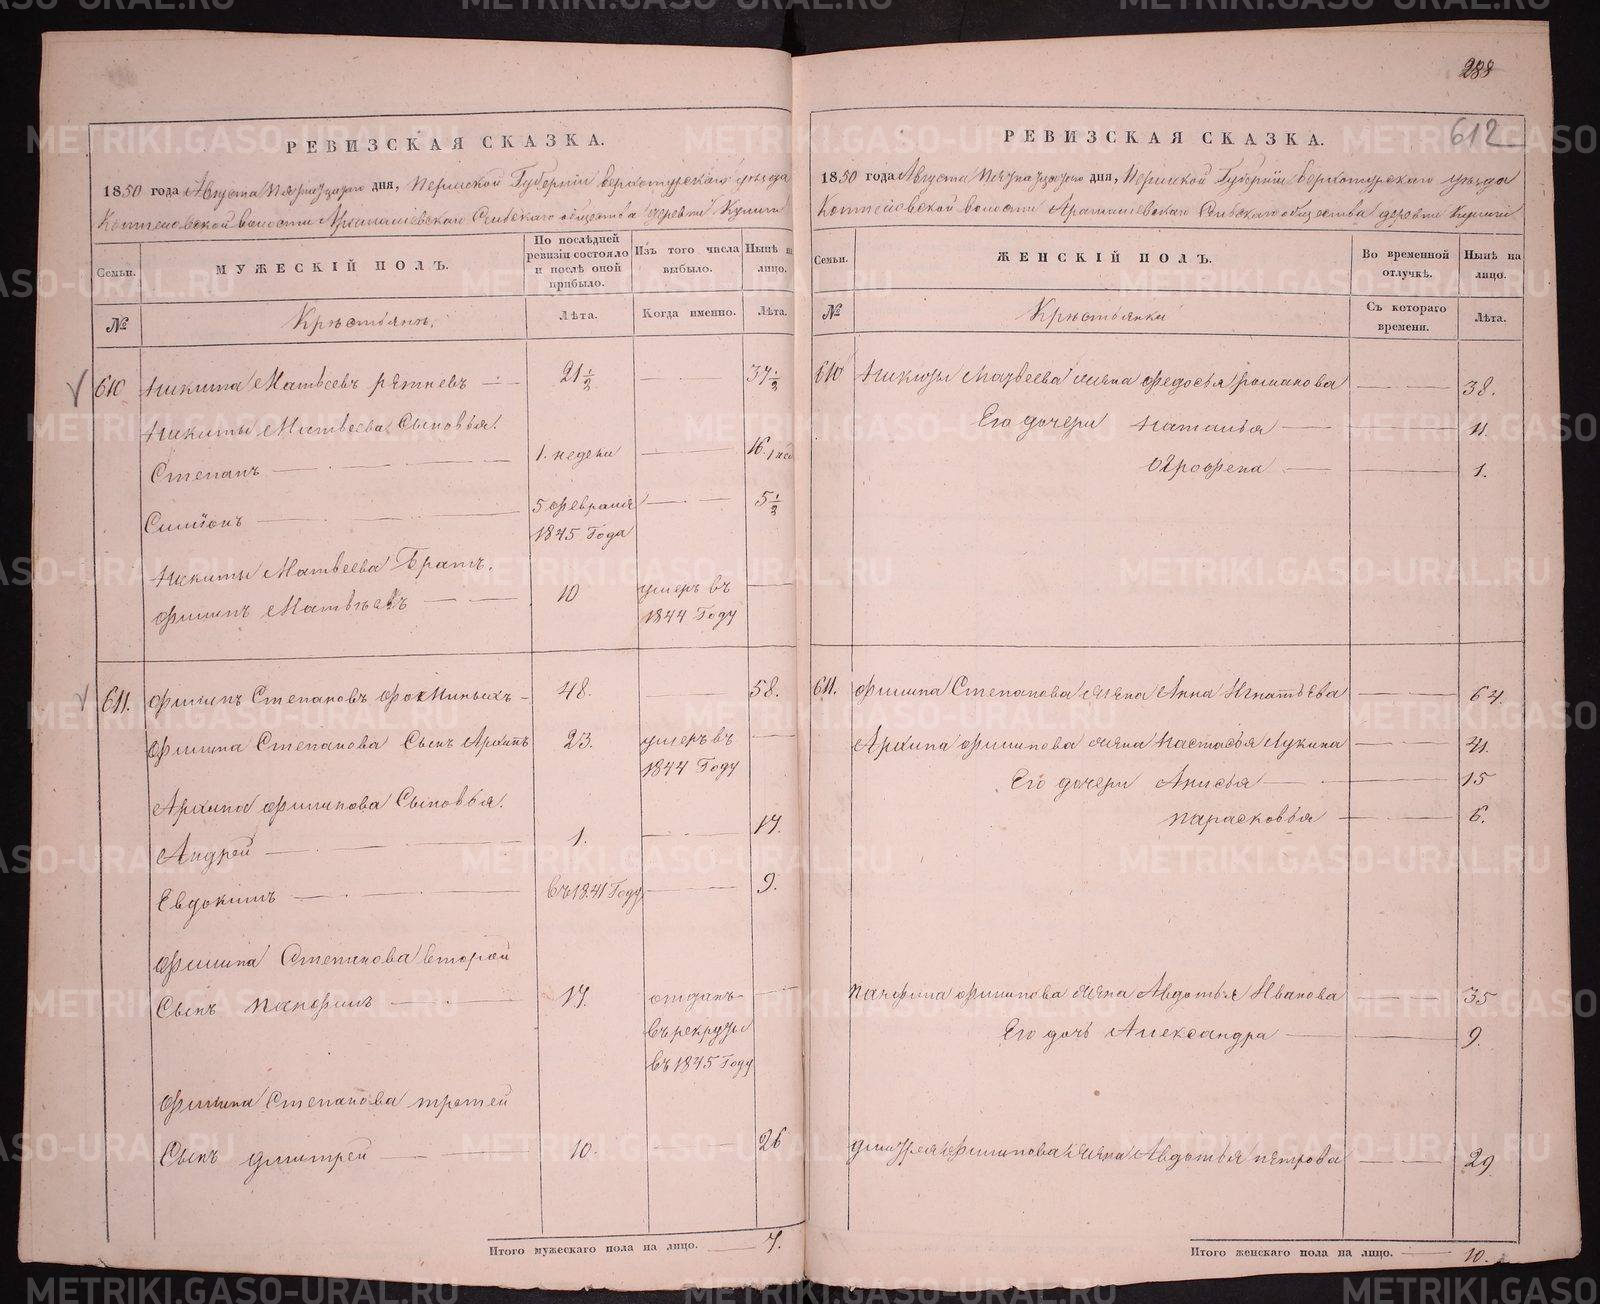 288
612
РЕВИЗСКАЯ СКАЗКА.
1850 года Августа дня, Пермской Губернiи Верхотурскаго уѣзда
волости Сельскаго общества деревни
Семьи.
МУЖЕСКIЙ ПОЛЪ.
По послѣдней ревизiи состояло и послѣ оной прибыло.
Изъ того числа выбыло.
Нынѣ на лицо.
№
Крѣстьянѣ.
Лѣта.
Когда именно.
Лѣта.
610 Никита Матвеевъ 21 1/2 37 1/2
Никиты Матвеева Сыновья.
Степанъ 1. недели 16.
Симионъ 5 февраля 1845 Года 5 1/2
Никиты Матвеева Братъ.
Филипъ Матвѣевъ 10 умеръ въ 1844 Году
611. Филипъ Степановъ Фоминыхъ 48. 58.
Филипа Степанова Сынъ Архипъ 23. умеръ въ 1844 Году
Архипа Филипова Сыновья.
Андрей 1. 17.
Евдокимъ въ 1841 Году 9.
Филипа Степанова второй
Сынъ Панфилъ 17. отданъ въ рекруты въ 1845 Году
Филипа Степанова третей
Сынъ Дмитрей 10. 26
Итого мужескаго пола на лицо. 7.
РЕВИЗСКАЯ СКАЗКА.
1850 года Августа дня, Пермской Губернiи Верхотурскаго уѣзда
волости Сельскаго общества деревни
Семьи.
ЖЕНСКIЙ ПОЛЪ.
Во временной отлучкѣ.
Нынѣ на лицо.
№
Крѣстьянки
Съ котораго времени.
Лѣта.
610 Никиты Матвеева жена Федосья Романова 38.
Его дочери Наталья 11.
Огрофена 1.
611. Филипа Степанова жена Анна Игнатьева 64.
Архипа Филипова жена Настасья Лукина 41.
Его дочери Анисья 15
Парасковья 6.
Панфила Филипова жена Авдотья Иванова 35
Его дочь Александра 9.
Дмитрея Филипова жена Авдотья Пятрова 29
Итого женскаго пола на лицо. 10.
METRIKI.GASO-URAL.RU